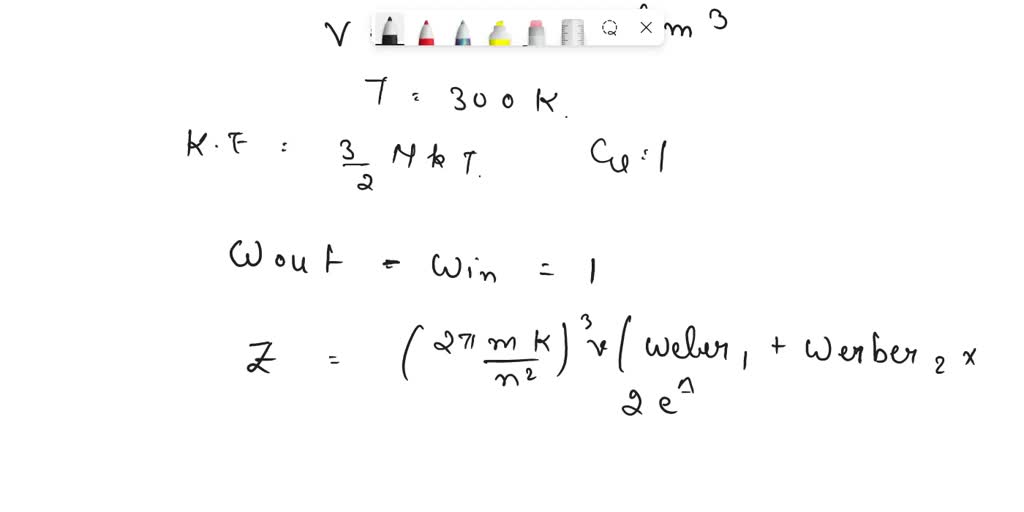 V : m³
T = 300 K.
K.E = 3/2 N k T. Cu = 1
Wout - Win = 1
Z = (2π m k / n²)³ v (weber₁ + werber₂ ×
2 e^